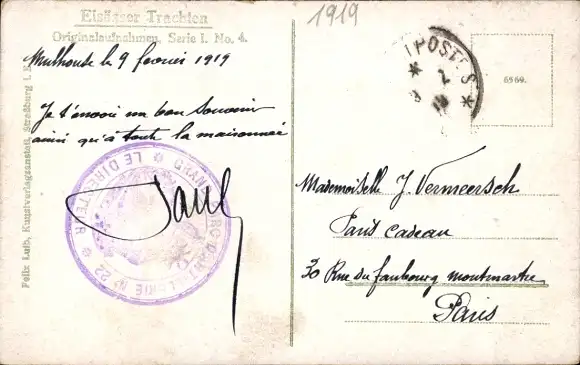 1919
Elsässer Trachten
Originalaufnahmen. Serie I. No. 4.
Mulhouse le 9 fevrier 1919
Je t'envoie un bon souvenir
ainsi qu'à toute la maisonnée
Paul
Felix Luib, Kunstverlagsanstalt, Straßburg i. E.
LE DIRECTEUR
N° 22
POSTES
6569.
Mademoiselle J. Vermeersch
Paris Cadeau
30 Rue du faubourg montmartre
Paris